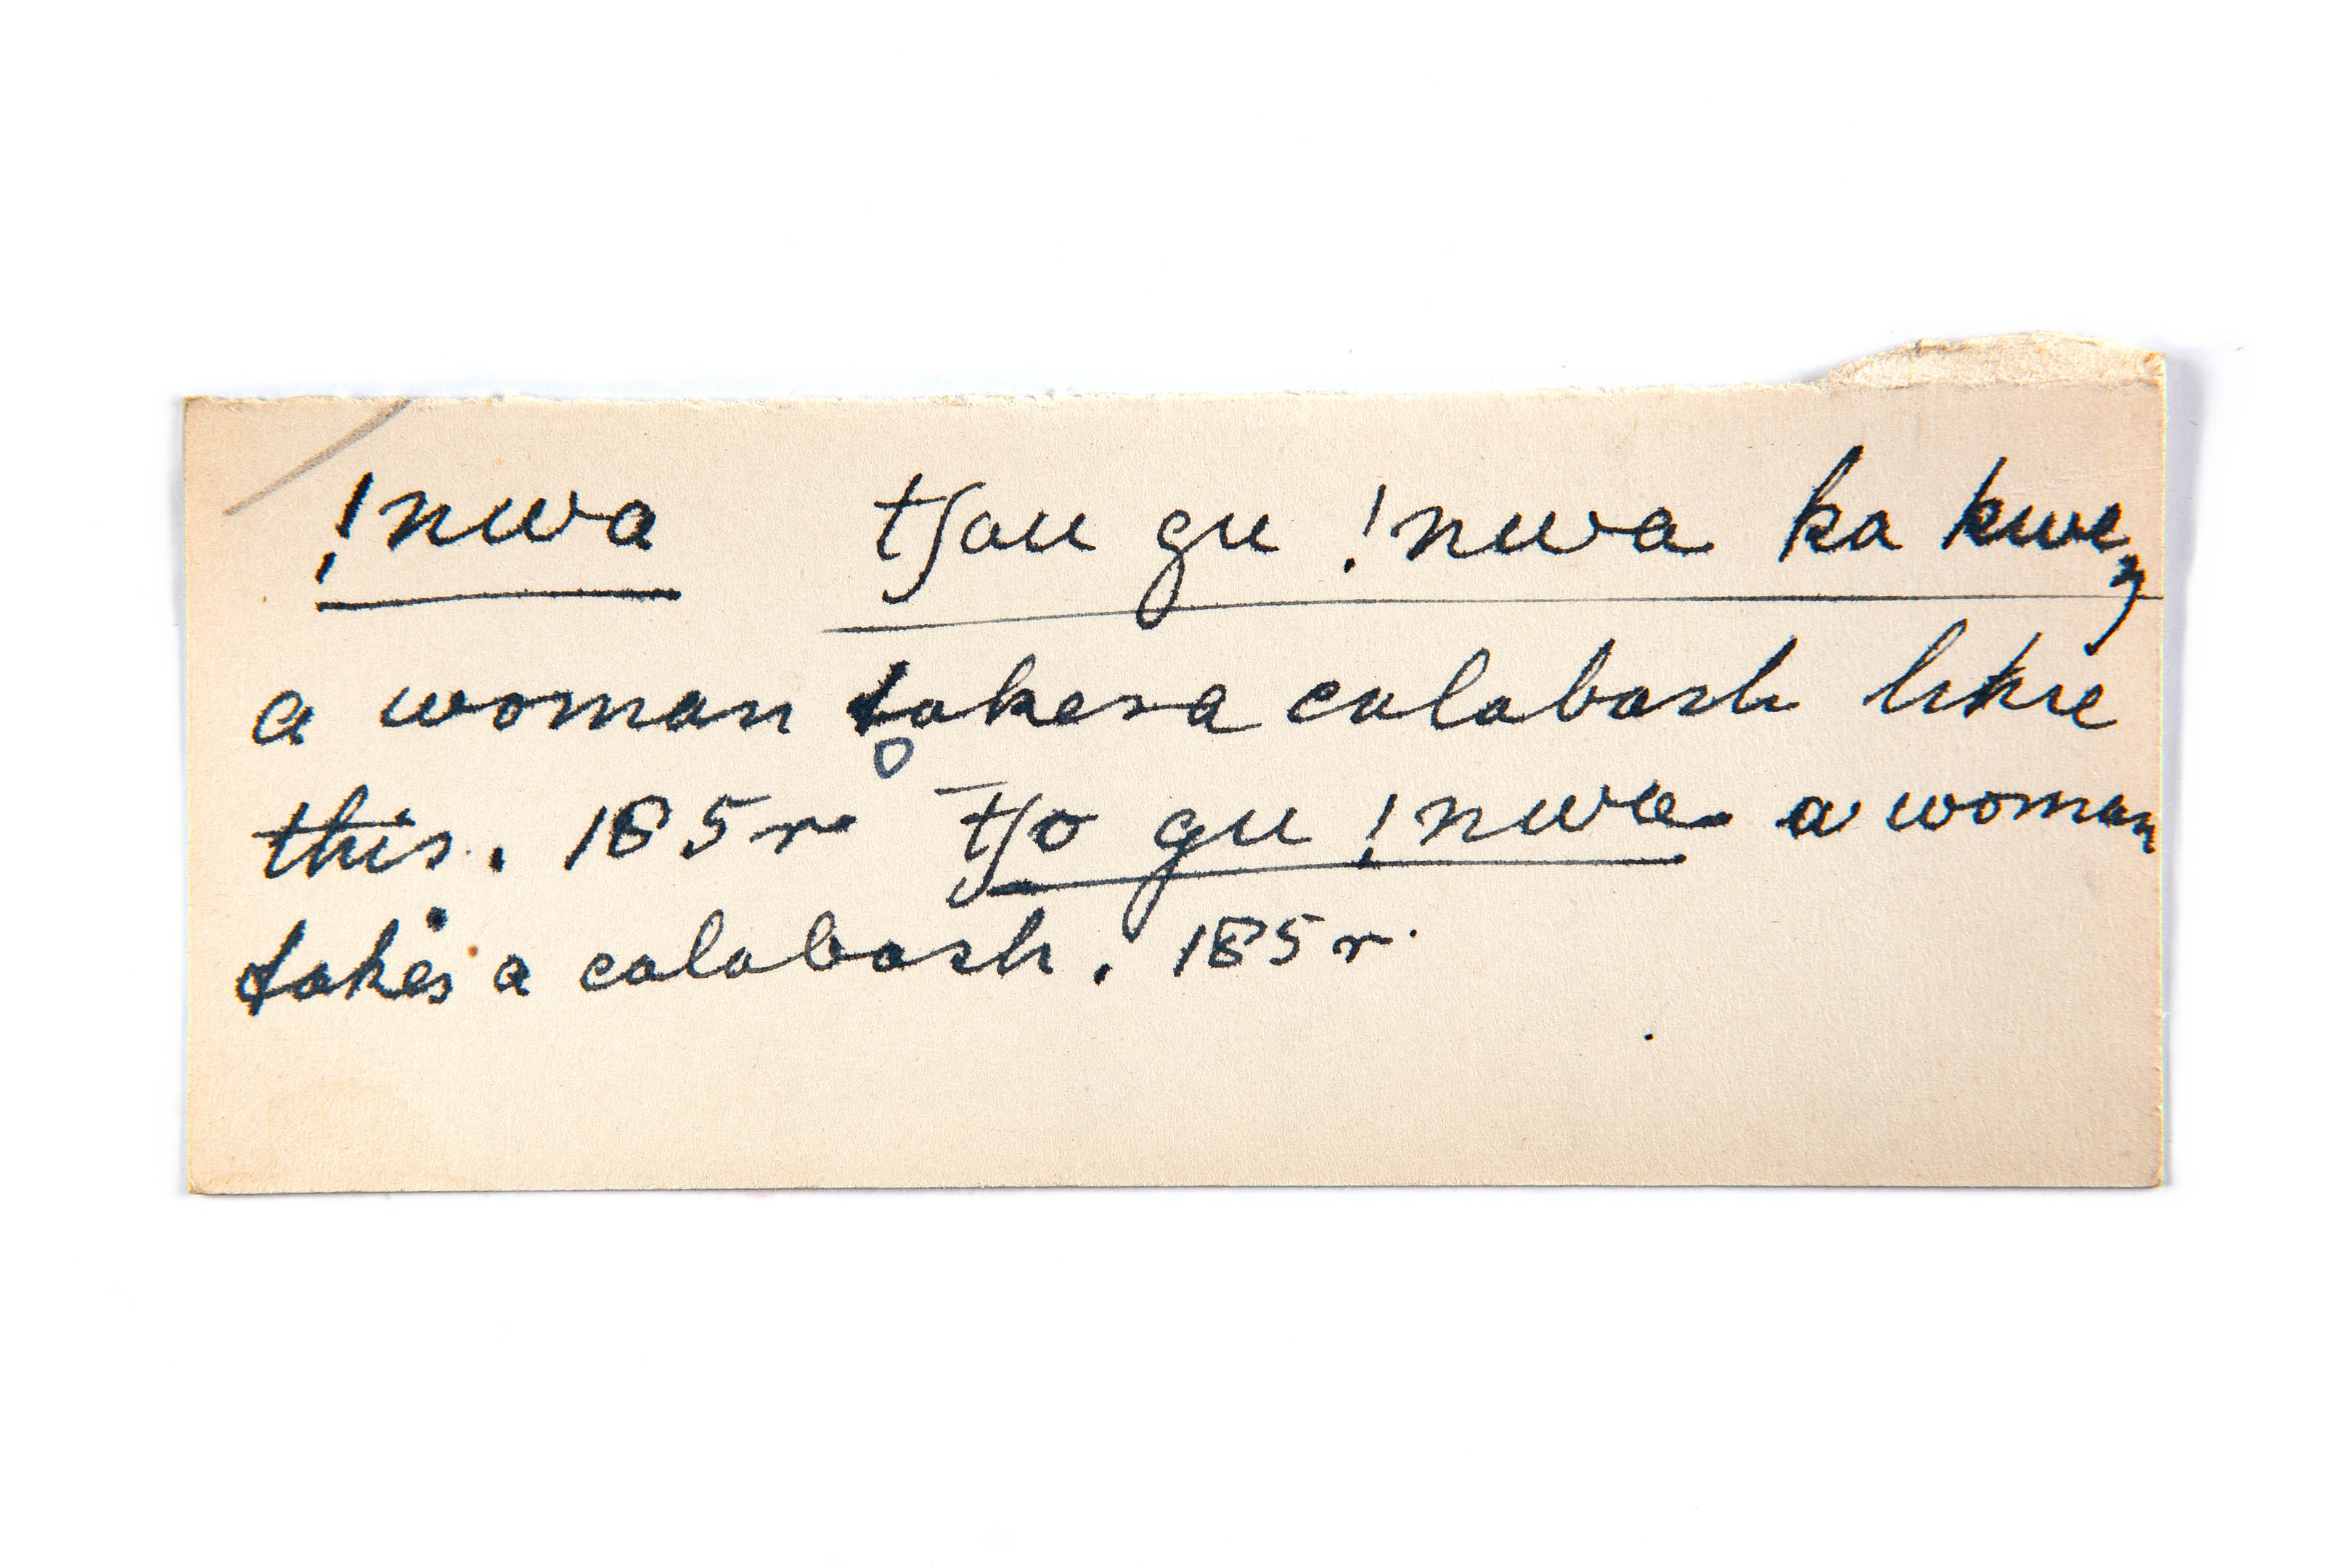 !nwa tʃau gu !nwa ka kweŋ
a woman takes a calabash like
this. 185r tʃo gu !nwa a woman
takes a calabash. 185r